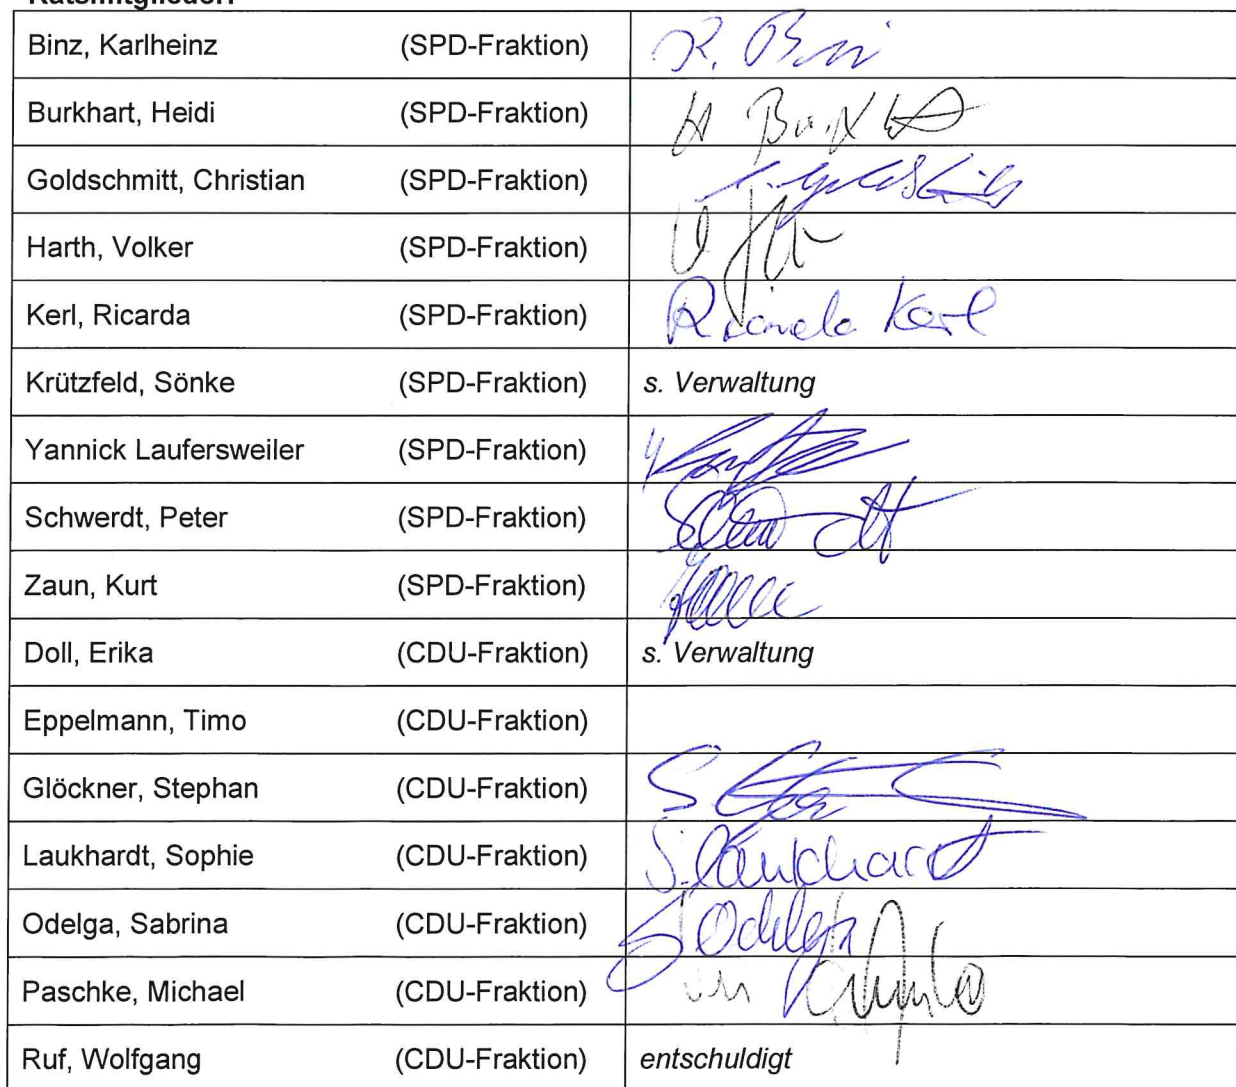 Ratsmitglieder:
Binz, Karlheinz (SPD-Fraktion) R. Bin
Burkhart, Heidi (SPD-Fraktion) H
Goldschmitt, Christian (SPD-Fraktion)
Harth, Volker (SPD-Fraktion)
Kerl, Ricarda (SPD-Fraktion) Ricarda Kerl
Krützfeld, Sönke (SPD-Fraktion) s. Verwaltung
Yannick Laufersweiler (SPD-Fraktion)
Schwerdt, Peter (SPD-Fraktion)
Zaun, Kurt (SPD-Fraktion)
Doll, Erika (CDU-Fraktion) s. Verwaltung
Eppelmann, Timo (CDU-Fraktion)
Glöckner, Stephan (CDU-Fraktion) S.
Laukhardt, Sophie (CDU-Fraktion) S. Laukhardt
Odelga, Sabrina (CDU-Fraktion) S Odelga
Paschke, Michael (CDU-Fraktion)
Ruf, Wolfgang (CDU-Fraktion) entschuldigt